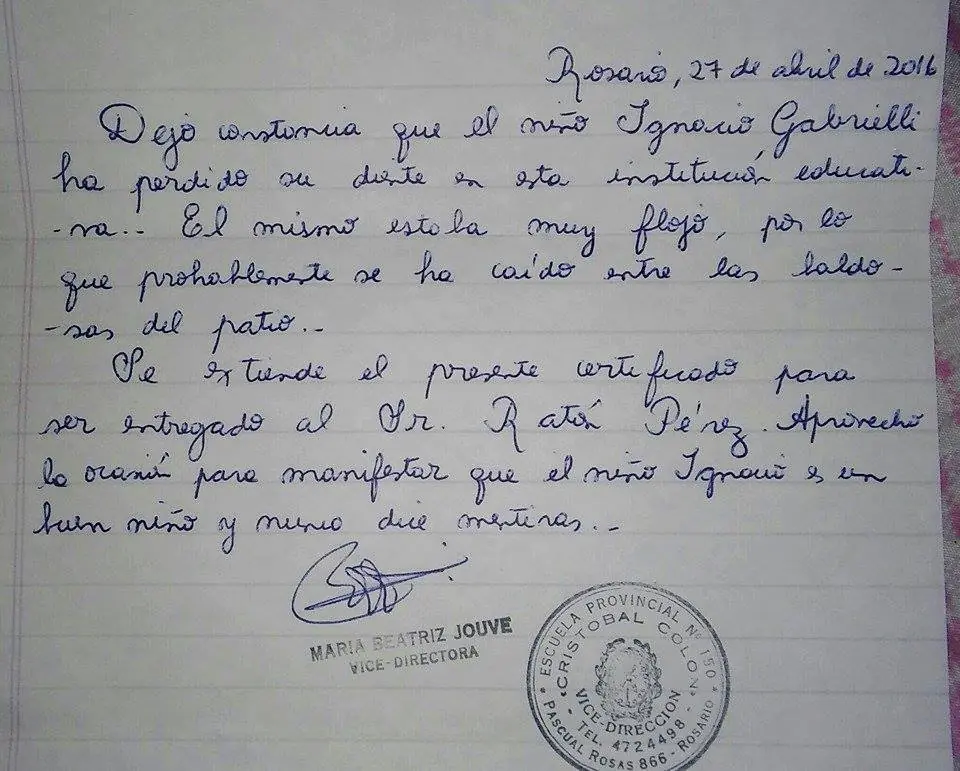 Rosario, 27 de abril de 2016
Dejo constancia que el niño Ignacio Gabrielli
ha perdido su diente en esta institución educati-
-va.. El mismo estaba muy flojo, por lo
que probablemente se ha caído entre las baldo-
-sas del patio..
Se extiende el presente certificado para
ser entregado al Sr. Ratón Pérez. Aprovecho
la ocasión para manifestar que el niño Ignacio es un
buen niño y nunca dice mentiras..
MARIA BEATRIZ JOUVE
VICE-DIRECTORA
ESCUELA PROVINCIAL Nº 150
CRISTOBAL COLON
VICE-DIRECCION
- TEL. 4724498 -
PASCUAL ROSAS 866 - ROSARIO